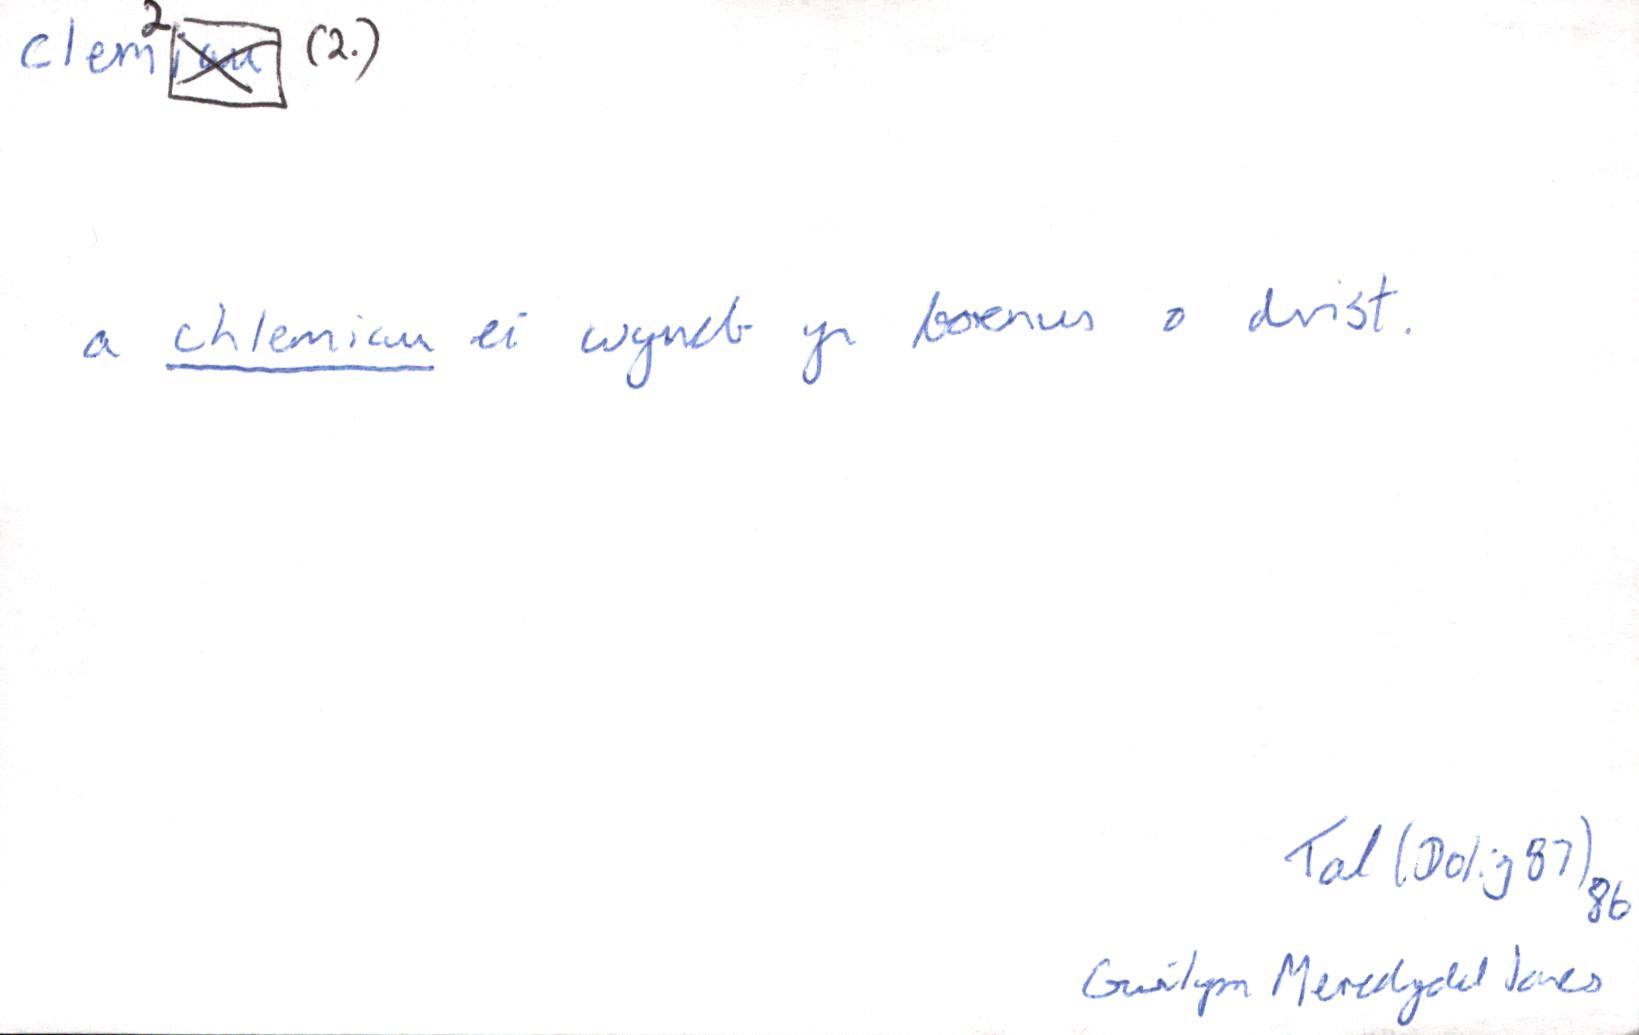 clem² iau (2.)
a chlemiau ei wyneb yn boenus o drist.
Tal (Dolig 87) 86
Gwilym Meredydd Jones